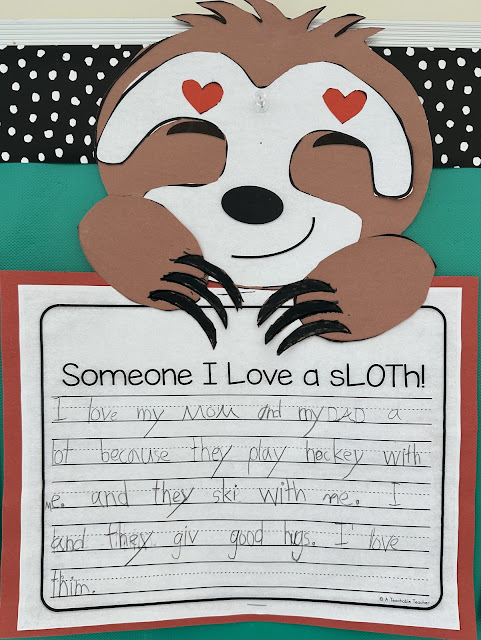 Someone I Love a sLOTh!
I love my MOM and my DAD a
lot because they play hockey with
me. and they ski with me. I
and they giv good hugs. I love
thim.
© A Teachable Teacher